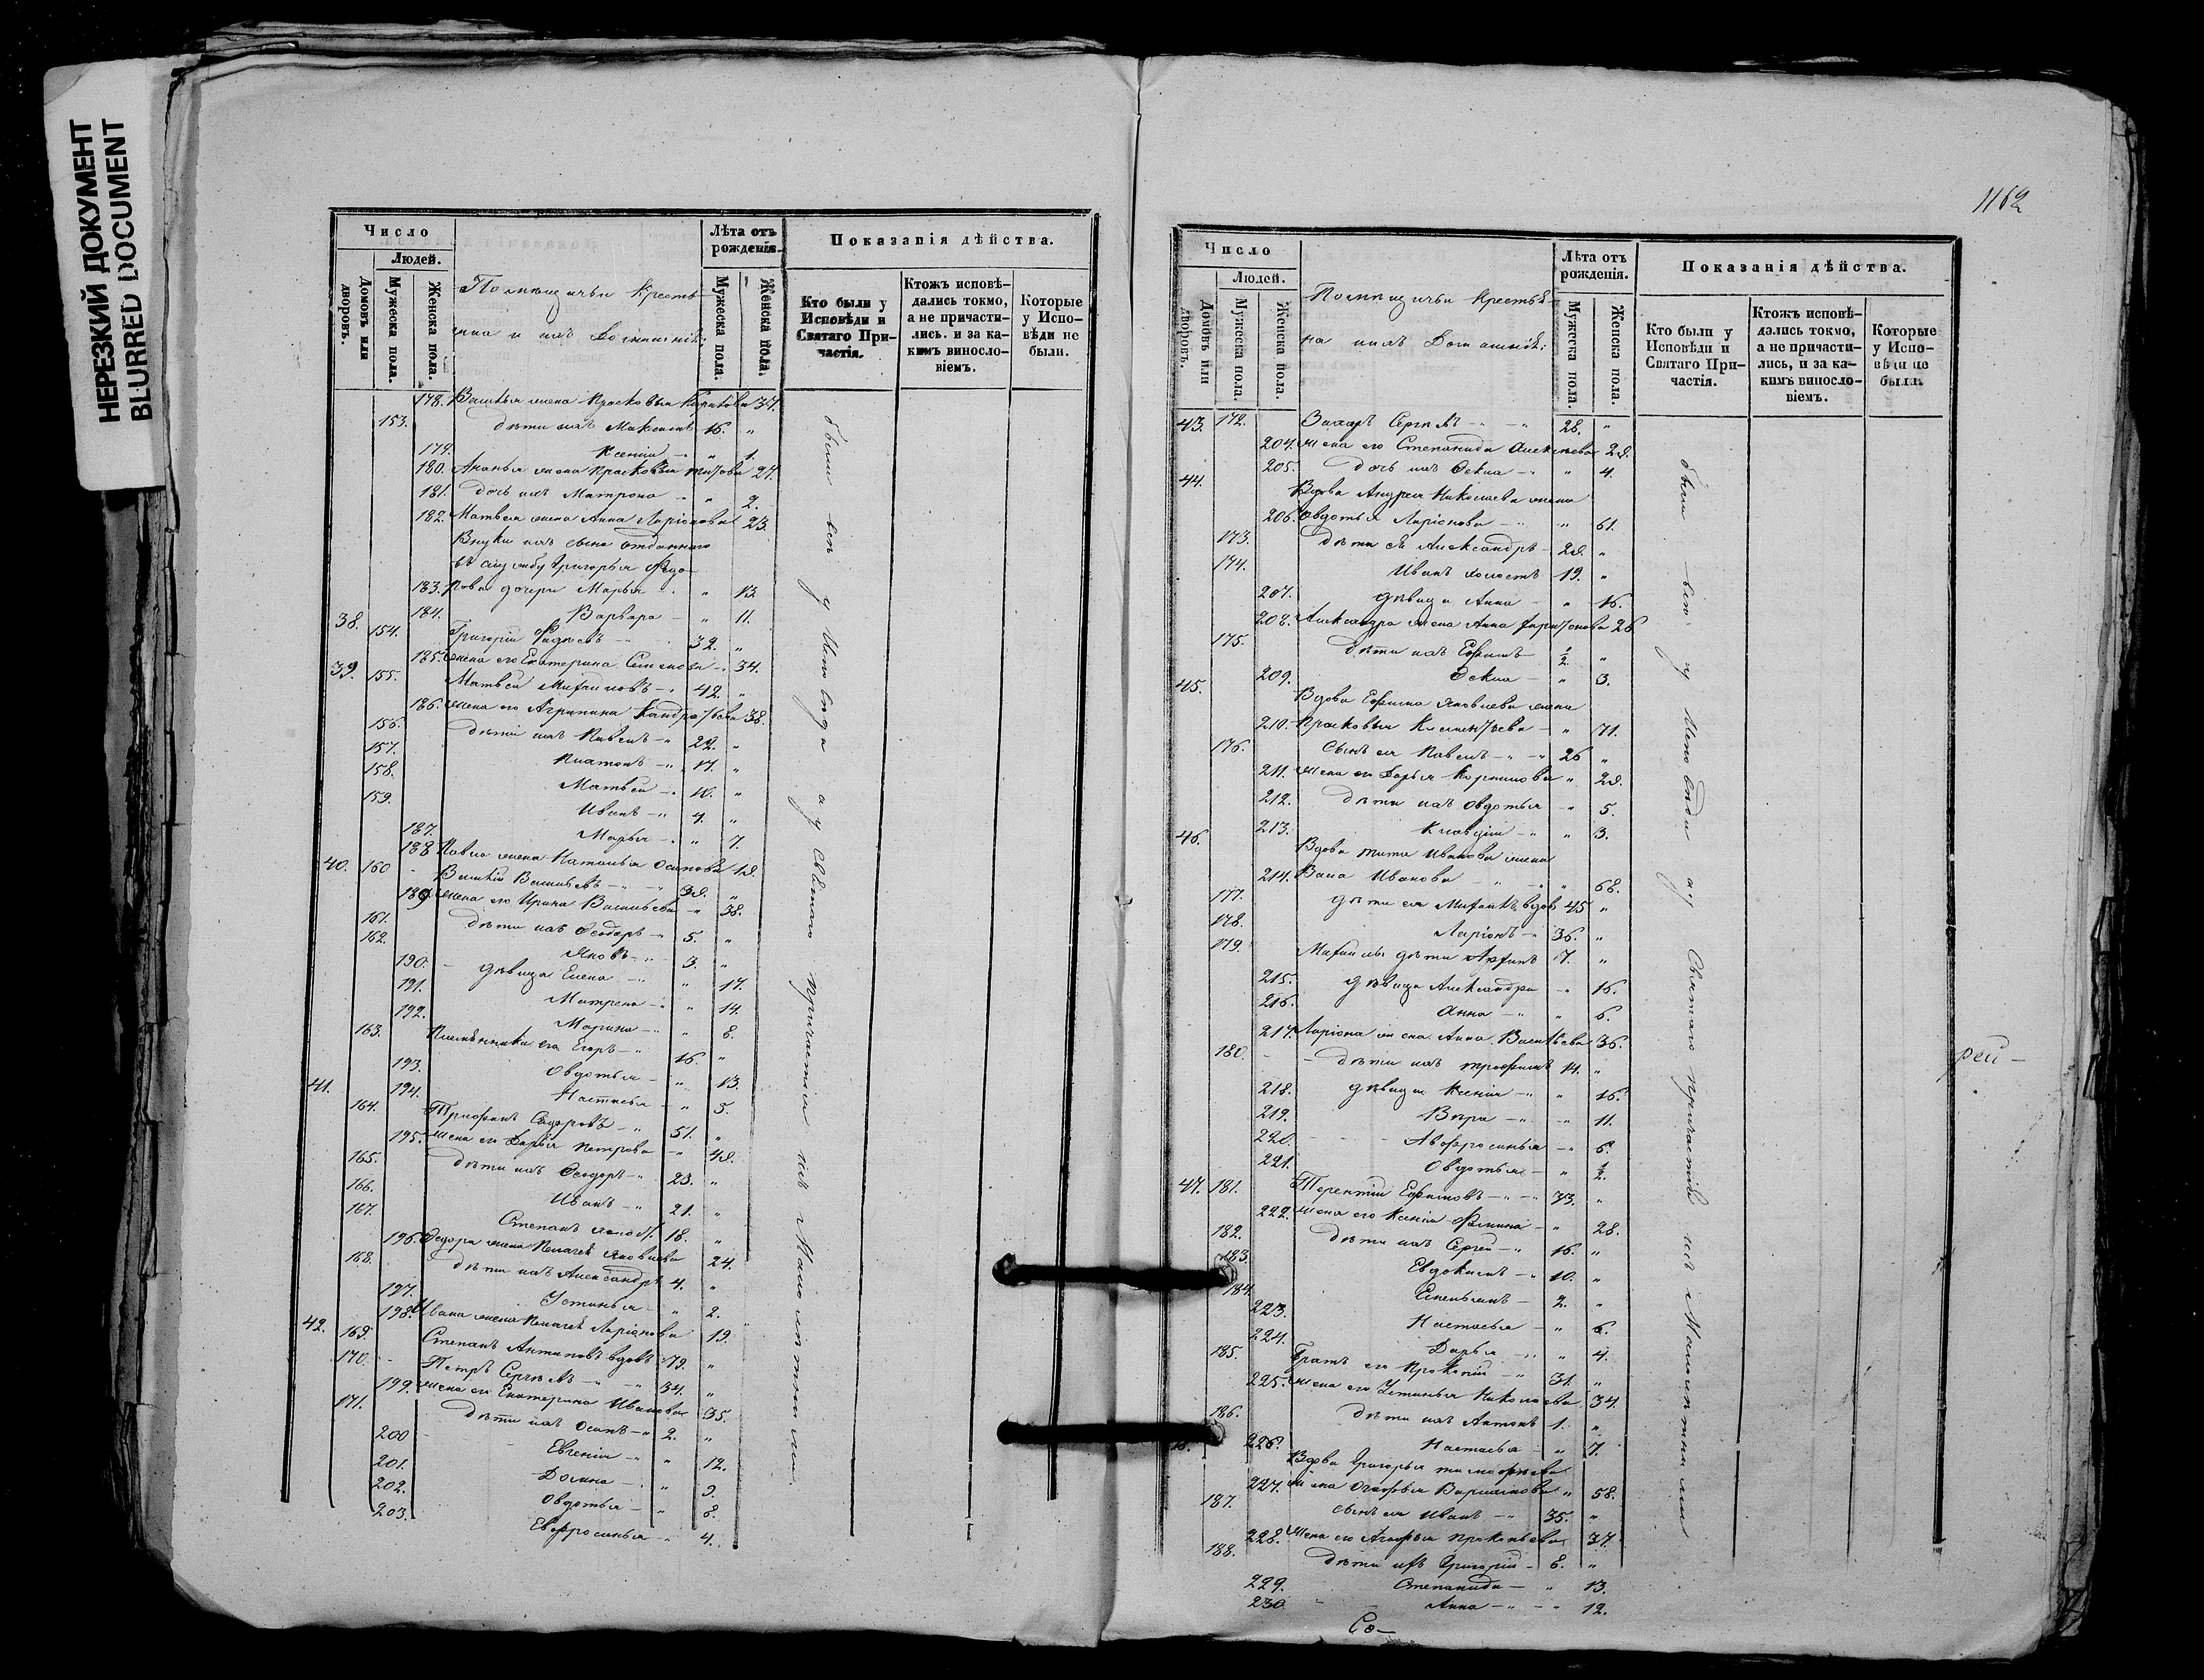 НЕРЕЗКИЙ ДОКУМЕНТ
BLURRED DOCUMENT
Число
Людей.
Домовъ или дворовъ.
Мужеска пола.
Женска пола.
Помѣщичьи крестья-
не и ихъ домашніе:
Лѣта отъ рожденія.
Мужеска пола.
Женска пола.
Показанія дѣйства.
Кто были у Исповѣди и Святаго Причастія.
Ктожъ исповѣдались токмо, а не причастились. и за какимъ винословіемъ.
Которые у Исповѣди не были.
178. жена Прасковья 34.
153. дѣти ихъ Максимъ 16. "
179. Ксенія " 1.
180. Ананья жена Прасковья Титова 27.
181. дочь ихъ Матрона " 2.
182. Матвея жена Анна Ларіонова 23.
Внуки ихъ сына отданнаго
въ службу Григорья Ѳедо-
183. рова дочери Марья " 13.
184. Варвара " 11.
38. 154. Григорій 32. "
185. жена его Екатерина Семенова " 34.
39. 155. Матвей Михайловъ 42. "
186. жена его Агрипина Кандратьева 38.
156. дѣти ихъ Павелъ 22. "
157. Платонъ 17. "
158. Матвей 10. "
159. Иванъ 4. "
187. Марья " 7.
188 Павла жена Наталья Осипова 19.
40. 160 Василій Васильевъ 39. "
189. жена его Ирина Васильева " 38.
161. дѣти ихъ Ѳеодоръ 5. "
162. Яковъ 3. "
190. дѣвица Елена " 17.
191. Матрена " 14.
192. Марина " 8.
163. Племянники его Егоръ 16. "
193. Овдотья " 13.
41. 194. Настасья " 5.
164. Трифонъ Сидоровъ 51. "
195. жена его Дарья Петрова " 49.
165. дѣти ихъ Ѳеодоръ 23. "
166. Иванъ 21. "
167. Степанъ холост. 18. "
196. Ѳедора жена Пелагея Яковлева 24.
168. дѣти ихъ Александръ 4. "
197. Устинья " 2.
198. Ивана жена Пелагея Ларіонова 19.
42. 169. Степанъ Антиповъ вдовъ 79. "
170. Петръ Сергѣевъ 34. "
199. жена его Екатерина Иванова 35.
171. дѣти ихъ Осипъ 2. "
200 Евгенія " 12.
201. Домна " 9.
202. Овдотья " 8.
203. Евфросинья " 4.
были всѣ у Исповѣди а у Святаго причастія ихъ Малолѣтними
1162
Число
Людей.
Домовъ или дворовъ.
Мужеска пола.
Женска пола.
Помѣщичьи крестья-
не и ихъ домашніе:
Лѣта отъ рожденія.
Мужеска пола.
Женска пола.
Показанія дѣйства.
Кто были у Исповѣди и Святаго Причастія.
Ктожъ исповѣдались токмо, а не причастились, и за какимъ винословіемъ.
Которые у Исповѣди не были.
43. 172. Захаръ Сергѣевъ 28. "
204. жена его Степанида Алексѣева 29.
205. дочь ихъ Ѳекла " 4.
44. Вдова Андрея Николаева жена
206. Овдотья Ларіонова " 61.
173. дѣти ея Александръ 29. "
174. Иванъ холостъ 19. "
207. дѣвица Анна " 16.
208. Александра жена Анна Харитонова 26
175. дѣти ихъ Ефимъ 1/2. "
209. Ѳекла " 3.
45. Вдова Ефима Яковлева жена
210. Прасковья Клементьева " 71.
176. сынъ ея Павелъ 26 "
211. жена его Дарья Корнилова " 29.
212. дѣти ихъ Овдотья " 5.
213. Клавдія " 3.
46. Вдова Тита Иванова жена
214. Васа Иванова " 68.
177. дѣти ея Михайла вдовъ 45 "
178. Ларіонъ 36. "
179. Михайлы дѣти Архипъ 17. "
215. дѣвица Александра 16.
216. Анна " 6.
217. Ларіона жена Анна Васильева 36.
180. дѣти ихъ Трофимъ 14. "
218. дѣвица Ксенія " 16.
219. Вѣра " 11.
220. Авфросинья " 6.
221. Овдотья " 1/2.
47. 181. Терентій Ефимовъ 73. "
222. жена его Ксенія Фомина " 28.
182. дѣти ихъ Сергей 16. "
183. Евдокимъ 10. "
184. Емельянъ 2. "
223. Настасья " 6.
224. Дарья " 4.
185. Братъ его Прокопій 31. "
225. жена его Устинья Николаева 34.
186. дѣти ихъ Антонъ 1. "
226. Настасья " 7.
Вдова Григорья Тимофеева
227. жена Агафья Варламова " 58.
187. сынъ ея Иванъ 35. "
228. жена его Агафья Прокопьева 37.
188. дѣти ихъ Григорій 8. "
229. Степанида " 13.
230 Анна " 12.
были всѣ у Исповѣди а у Святаго причастія ихъ Малолѣтними
рей-
Со-